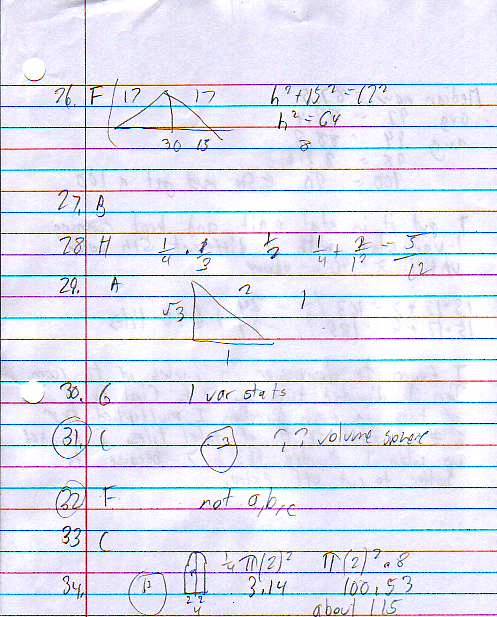 26. F 17 17 h² + 15² = 17²
h² = 64
30 15 8
27. B
28 H 1/4 · 1/3 1/2 1/4 + 2/12 = 5/12
29. A √3 2 1
1
30. G 1 var stats
31. C ? ? volume sphere
32 F not a,b,c
33 C
34. 1/4 π(2)² π(2)² · 8
2 2 3.14 100.53
4 about 115